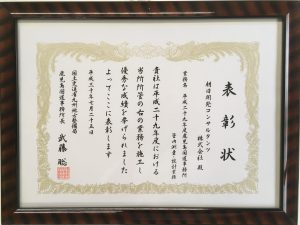 表彰状
朝日開発コンサルタンツ
株式会社 殿
業務名 平成二十九年度鹿児島国道事務所
管内測量・設計業務
貴社は平成二十九年度における
当所所管の右の業務を施工し
優秀な成績を挙げられました
よってここに表彰します
平成三十年七月二十五日
国土交通省九州地方整備局
鹿児島国道事務所長 武藤聡